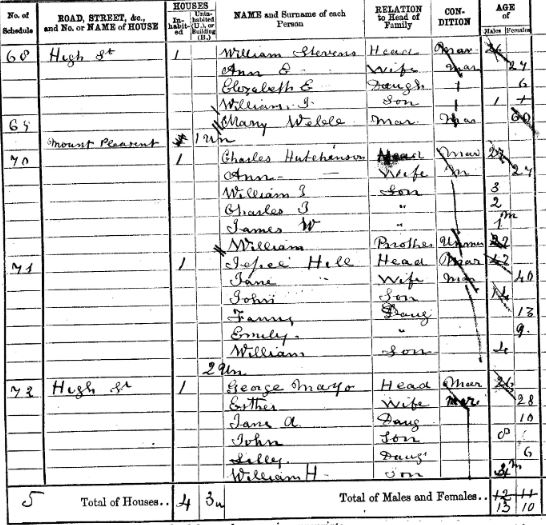 No. of Schedule ROAD, STREET, &c., and No. or NAME of HOUSE HOUSES In-habit-ed Unin-habited (U.), or Building (B.) NAME and Surname of each Person RELATION to Head of Family CON-DITION AGE of Males Females
68 High St 1 William Stevens Head Mar 26
Ann E Wife Mar 27
Elizabeth E Daugh 6
William J. Son 1
69 Mary Webb Mar Mar 60
Mount Pleasent 1 Un
70 1 Charles Hutchinson Head Mar 27
Ann Wife m 27
William J Son 3
Charles J " 2
James W " 1 m
William Brother Unmar 22
71 1 Hill Head Mar 42
Jane " Wife Mar 40
John Son 14
Fanny Daug 13
Emily " 9.
William Son 4
2 Un
72 High St 1 George Mayo Head Mar 26
Esther Wife Mar 28
Jane A. Daug 10
John Son 8
Lilly Daug 6
William H. Son m
5 Total of Houses.. 4 3u Total of Males and Females.. 12 11
13 10